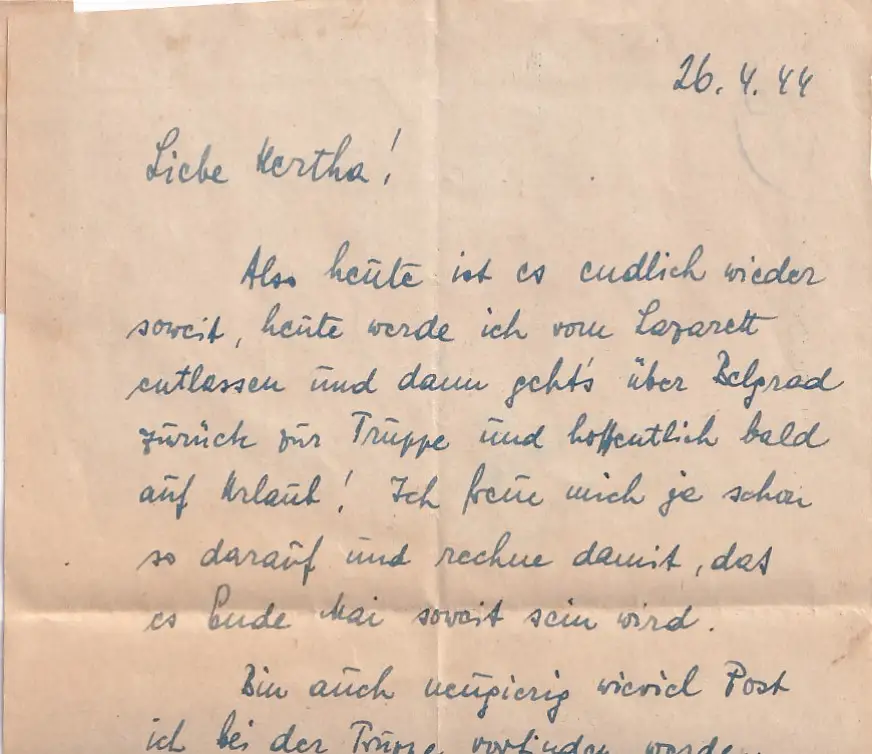 26. 4. 44
Liebe Hertha!
Also heute ist es endlich wieder
soweit, heute werde ich vom Lazarett
entlassen und dann geht's über Belgrad
zurück zur Truppe und hoffentlich bald
auf Urlaub! Ich freue mich ja schon
so darauf und rechne damit, das
es Ende Mai soweit sein wird.
Bin auch neugierig wieviel Post
ich bei der Truppe vorfinden werde